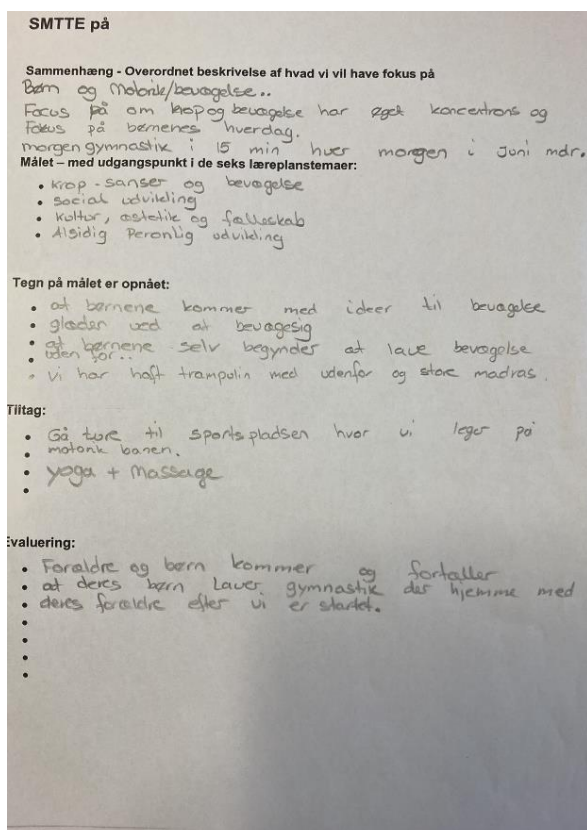 SMTTE på
Sammenhæng - Overordnet beskrivelse af hvad vi vil have fokus på
Børn og Motorik/bevægelse..
Focus på om krop og bevægelse har øget koncentrons og
Fokus på børnenes hverdag.
morgengymnastik i 15 min hver morgen i Juni mdr.
Målet – med udgangspunkt i de seks læreplanstemaer:
• Krop - sanser og bevægelse
• Social udvikling
• Kultur, æstetik og fælleskab
• Alsidig Peronlig udvikling
Tegn på målet er opnået:
• at børnene kommer med ideer til bevægelse
• glæder ved at bevægesig
• at børnene selv begynder at lave bevægelse
• uden for..
• vi har haft trampolin med udenfor og store madras.
Tiltag:
• Gå ture til sportspladsen hvor vi leger på
• motorik banen.
• yoga + Massage
•
Evaluering:
• Forældre og børn kommer og fortæller
• at deres børn Laver gymnastik der hjemme med
• deres forældre efter vi er startet.
•
•
•
•